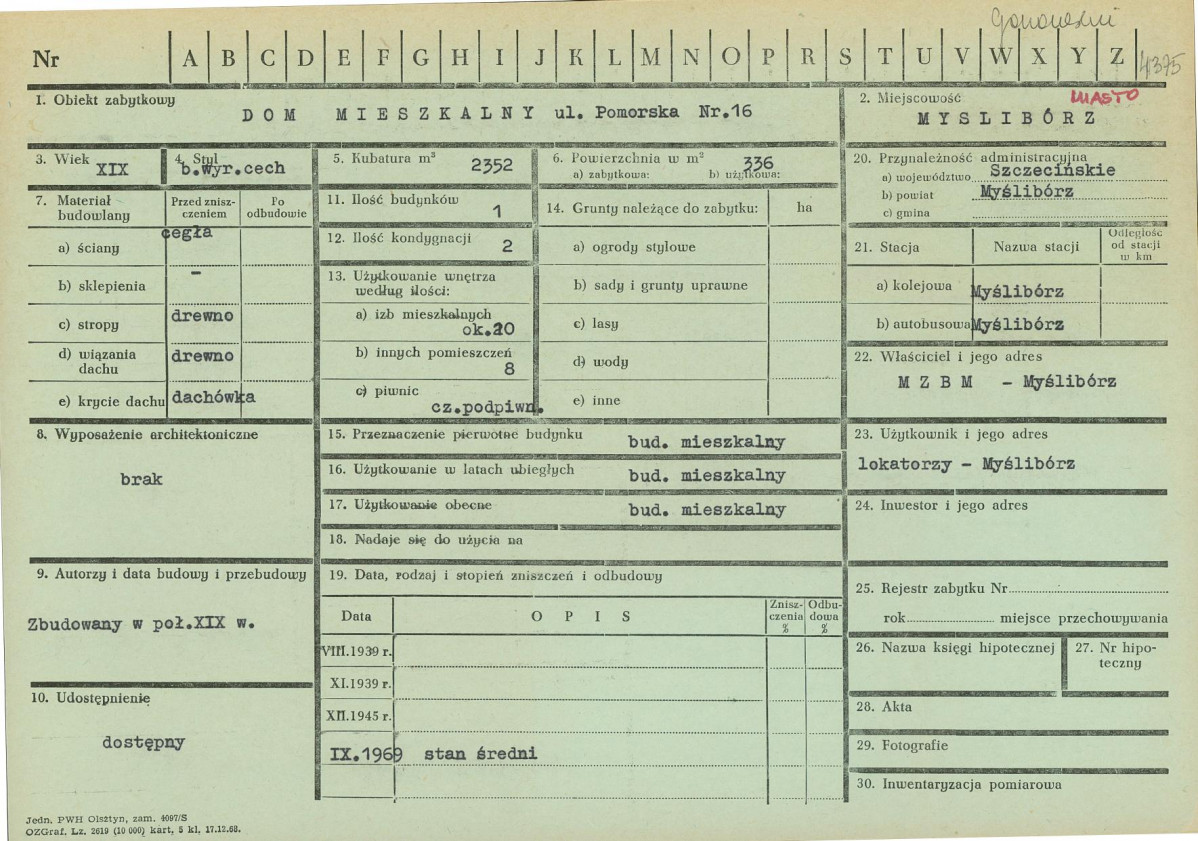 Nr A B C D E F G H I J K L M N O P R S T U V W X Y Z
4395
1. Obiekt zabytkowy
DOM MIESZKALNY ul. Pomorska Nr.16
2. Miejscowość
MIASTO
MYSLIBÓRZ
3. Wiek
XIX
4. Styl
b.wyr.cech
5. Kubatura m³
2352
6. Powierzchnia w m²
336
a) zabytkowa: b) użytkowa:
7. Materiał budowlany
Przed zniszczeniem
Po odbudowie
a) ściany
cegła
b) sklepienia
–
c) stropy
drewno
d) wiązania dachu
drewno
e) krycie dachu
dachówka
8. Wyposażenie architektoniczne
brak
9. Autorzy i data budowy i przebudowy
Zbudowany w poł.XIX w.
10. Udostępnienie
dostępny
11. Ilość budynków
1
12. Ilość kondygnacji
2
13. Użytkowanie wnętrza
według ilości:
a) izb mieszkalnych
ok.20
b) innych pomieszczeń
8
c) piwnic
cz.podpiwn.
14. Grunty należące do zabytku: ha
a) ogrody stylowe
b) sady i grunty uprawne
c) lasy
d) wody
e) inne
15. Przeznaczenie pierwotne budynku bud. mieszkalny
16. Użytkowanie w latach ubiegłych bud. mieszkalny
17. Użytkowanie obecne bud. mieszkalny
18. Nadaje się do użycia na
19. Data, rodzaj i stopień zniszczeń i odbudowy
Data OPIS Zniszczenia % Odbudowa %
VIII.1939 r.
XI.1939 r.
XII.1945 r.
IX.1969 stan średni
20. Przynależność administracyjna
a) województwo Szczecińskie
b) powiat Myślibórz
c) gmina
21. Stacja Nazwa stacji
Odległość od stacji w km
a) kolejowa Myślibórz
b) autobusowa Myślibórz
22. Właściciel i jego adres
M Z B M - Myślibórz
23. Użytkownik i jego adres
lokatorzy - Myślibórz
24. Inwestor i jego adres
25. Rejestr zabytku Nr
rok miejsce przechowywania
26. Nazwa księgi hipotecznej
27. Nr hipoteczny
28. Akta
29. Fotografie
30. Inwentaryzacja pomiarowa
Jedn. PWH Olsztyn, zam. 4097/S
OZGraf. Lz. 2619 (10 000) kart, 5 kl, 17.12.68.